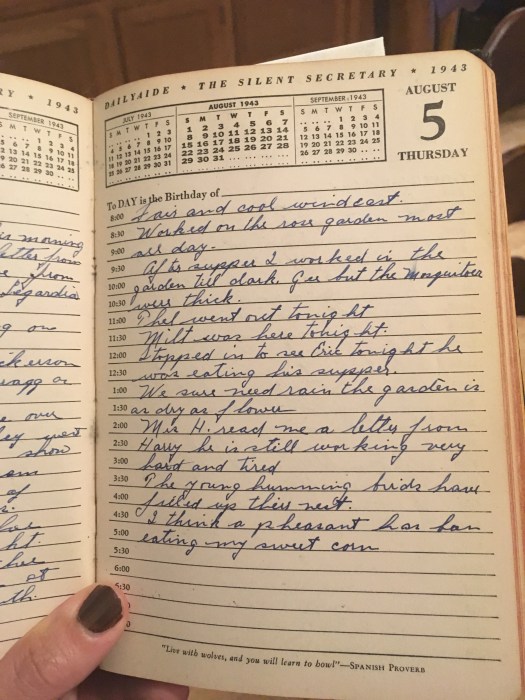 RY * 1943
SEPTEMBER 1943
morning
letter from
from
on
over
went
show
of
at
DAILYAIDE * THE SILENT SECRETARY * 1943
JULY 1943
S M T W T F S
. . . . 1 2 3
4 5 6 7 8 9 10
11 12 13 14 15 16 17
18 19 20 21 22 23 24
25 26 27 28 29 30 31
AUGUST 1943
S M T W T F S
1 2 3 4 5 6 7
8 9 10 11 12 13 14
15 16 17 18 19 20 21
22 23 24 25 26 27 28
29 30 31 . . . .
SEPTEMBER 1943
S M T W T F S
. . . 1 2 3 4
5 6 7 8 9 10 11
12 13 14 15 16 17 18
19 20 21 22 23 24 25
26 27 28 29 30 . .
AUGUST
5
THURSDAY
To DAY is the Birthday of
8:00 Fair and cool wind east.
8:30 Worked on the rose garden most
9:00 all day.
9:30 After supper I worked in the
10:00 garden till dark. Gee but the Mosquitoes
10:30 were thick.
11:00 Phel went out tonight
11:30 Milt was here tonight.
12:00 Stopped in to see Eric tonight he
12:30 was eating his supper.
1:00 We sure need rain the garden is
1:30 as dry as flower
2:00 Mis H. read me a letter from
2:30 Harry he is still working very
3:00 hard and tired
3:30 The young humming birds have
4:00 filled up their nest.
4:30 I think a pheasant has ban
5:00 eating my sweet corn
5:30
6:00
6:30
"Live with wolves, and you will learn to howl"—SPANISH PROVERB